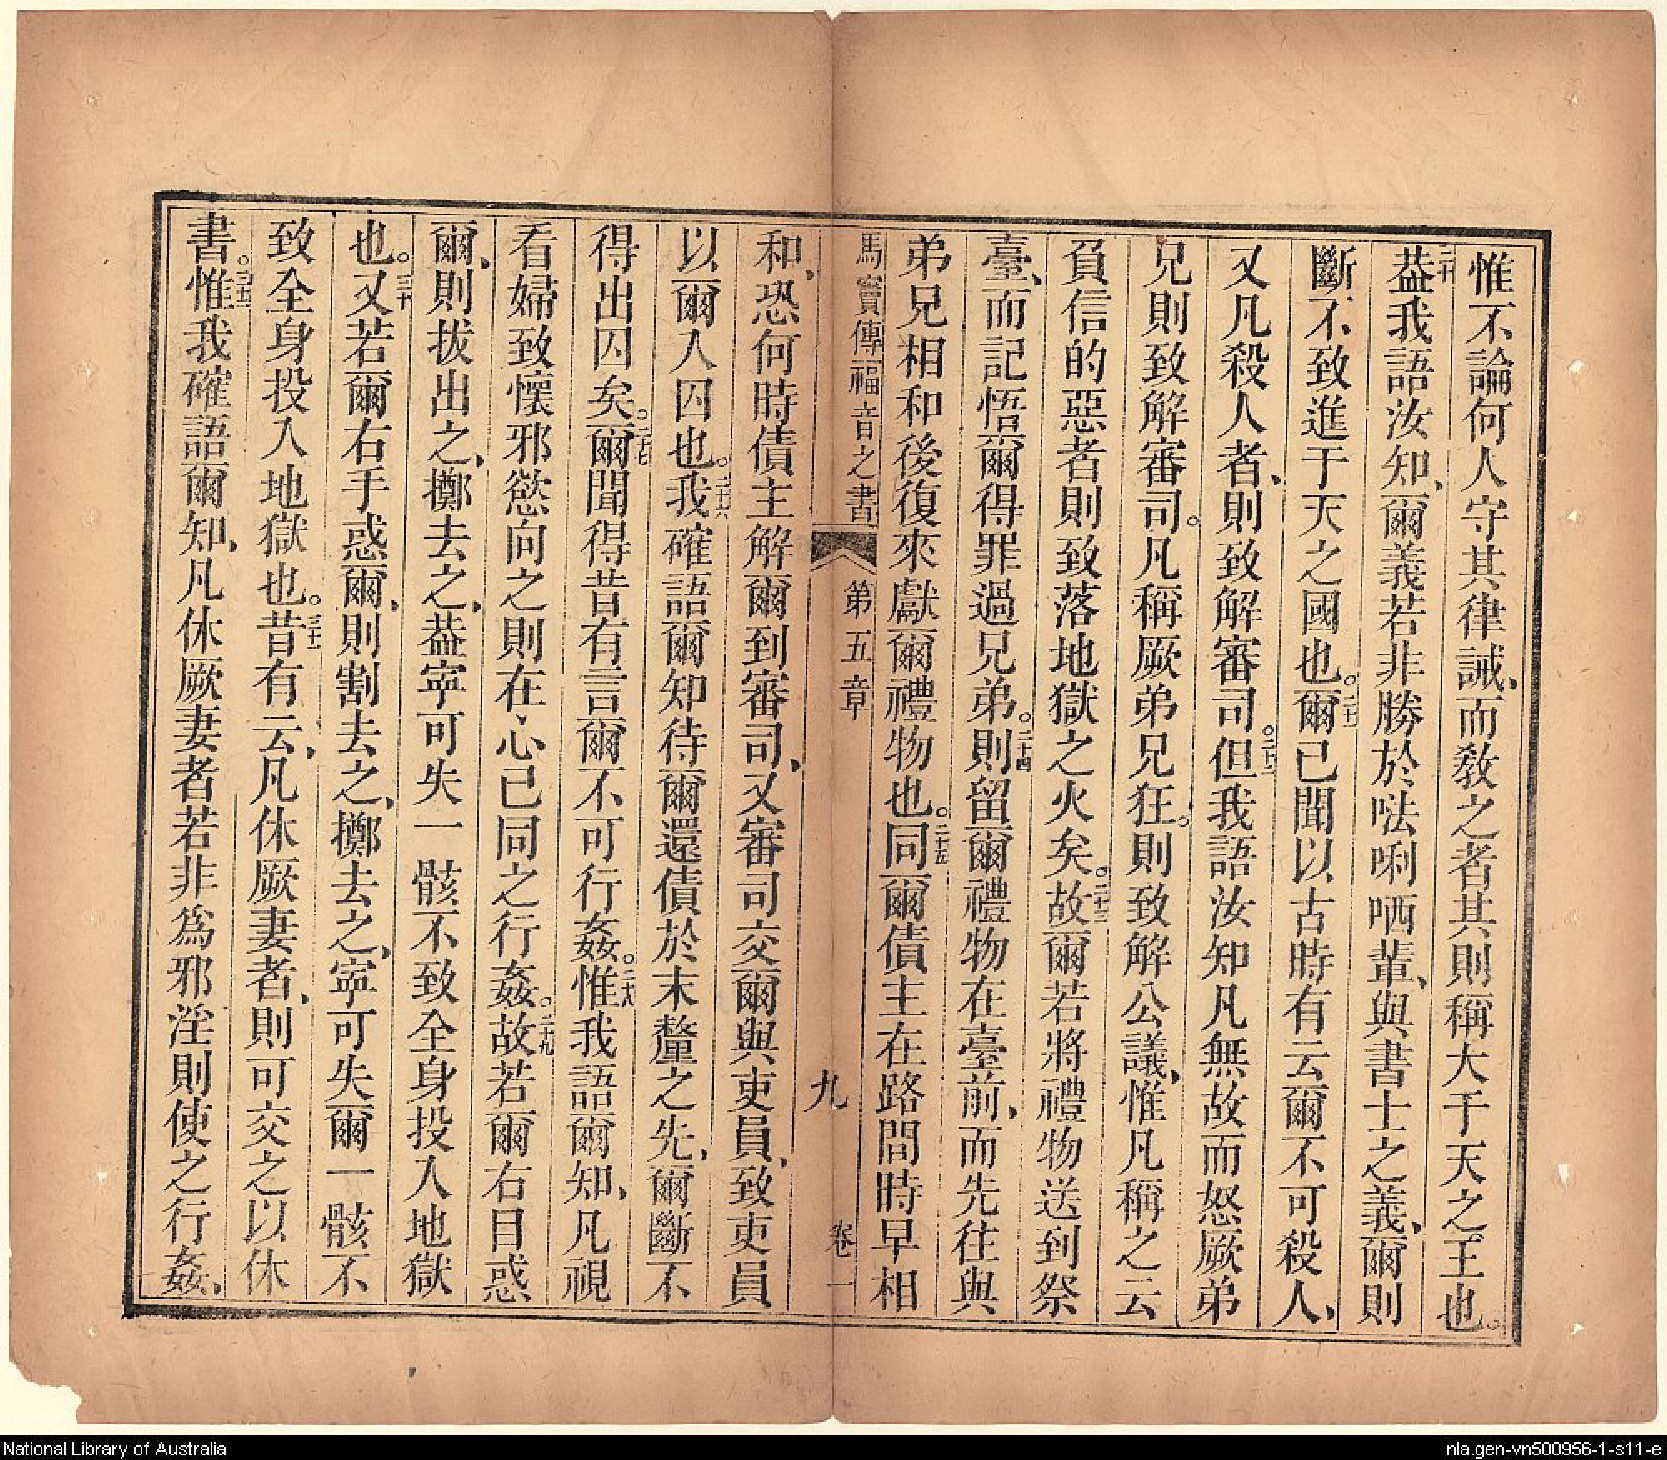 惟不論何人守其律誡、而教之者其則稱大于天之王也。
二十葢我語汝知、爾義若非勝於㕸唎哂輩、與書士之義、爾則
斷不致進于天之國也。二十一爾已聞以古時有云爾不可殺人、
又凡殺人者、則致解審司。二十二但我語汝知凡無故而怒厥弟
兄則致解審司。凡稱厥弟兄狂。則致解公議、惟凡稱之云
負信的惡者則致落地獄之火矣。二十三故爾若將禮物送到祭
臺、而記悟爾得罪過兄弟。二十四則留爾禮物在臺前、而先往與
弟兄相和後復來獻爾禮物也。二十五同爾債主在路間時早相
馬竇傳福音之書 第五章 九 卷一
和、恐何時債主解爾到審司、又審司交爾與吏員、致吏員
以爾入囚也。二十六我確語爾知待爾還債於末釐之先、爾斷不
得出囚矣。二十七爾聞得昔有言爾不可行姦。二十八惟我語爾知、凡視
看婦致懷邪慾向之則在心已同之行姦。二十九故若爾右目惑
爾、則拔出之、擲去之、葢寜可失一骸不致全身投入地獄
也。三十又若爾右手惑爾、則割去之、擲去之、寜可失爾一骸不
致全身投入地獄也。三十一昔有云、凡休厥妻者、則可交之以休
書。三十二惟我確語爾知、凡休厥妻者若非為邪淫則使之行姦、
National Library of Australia
nla.gen-vn500956-1-s11-e